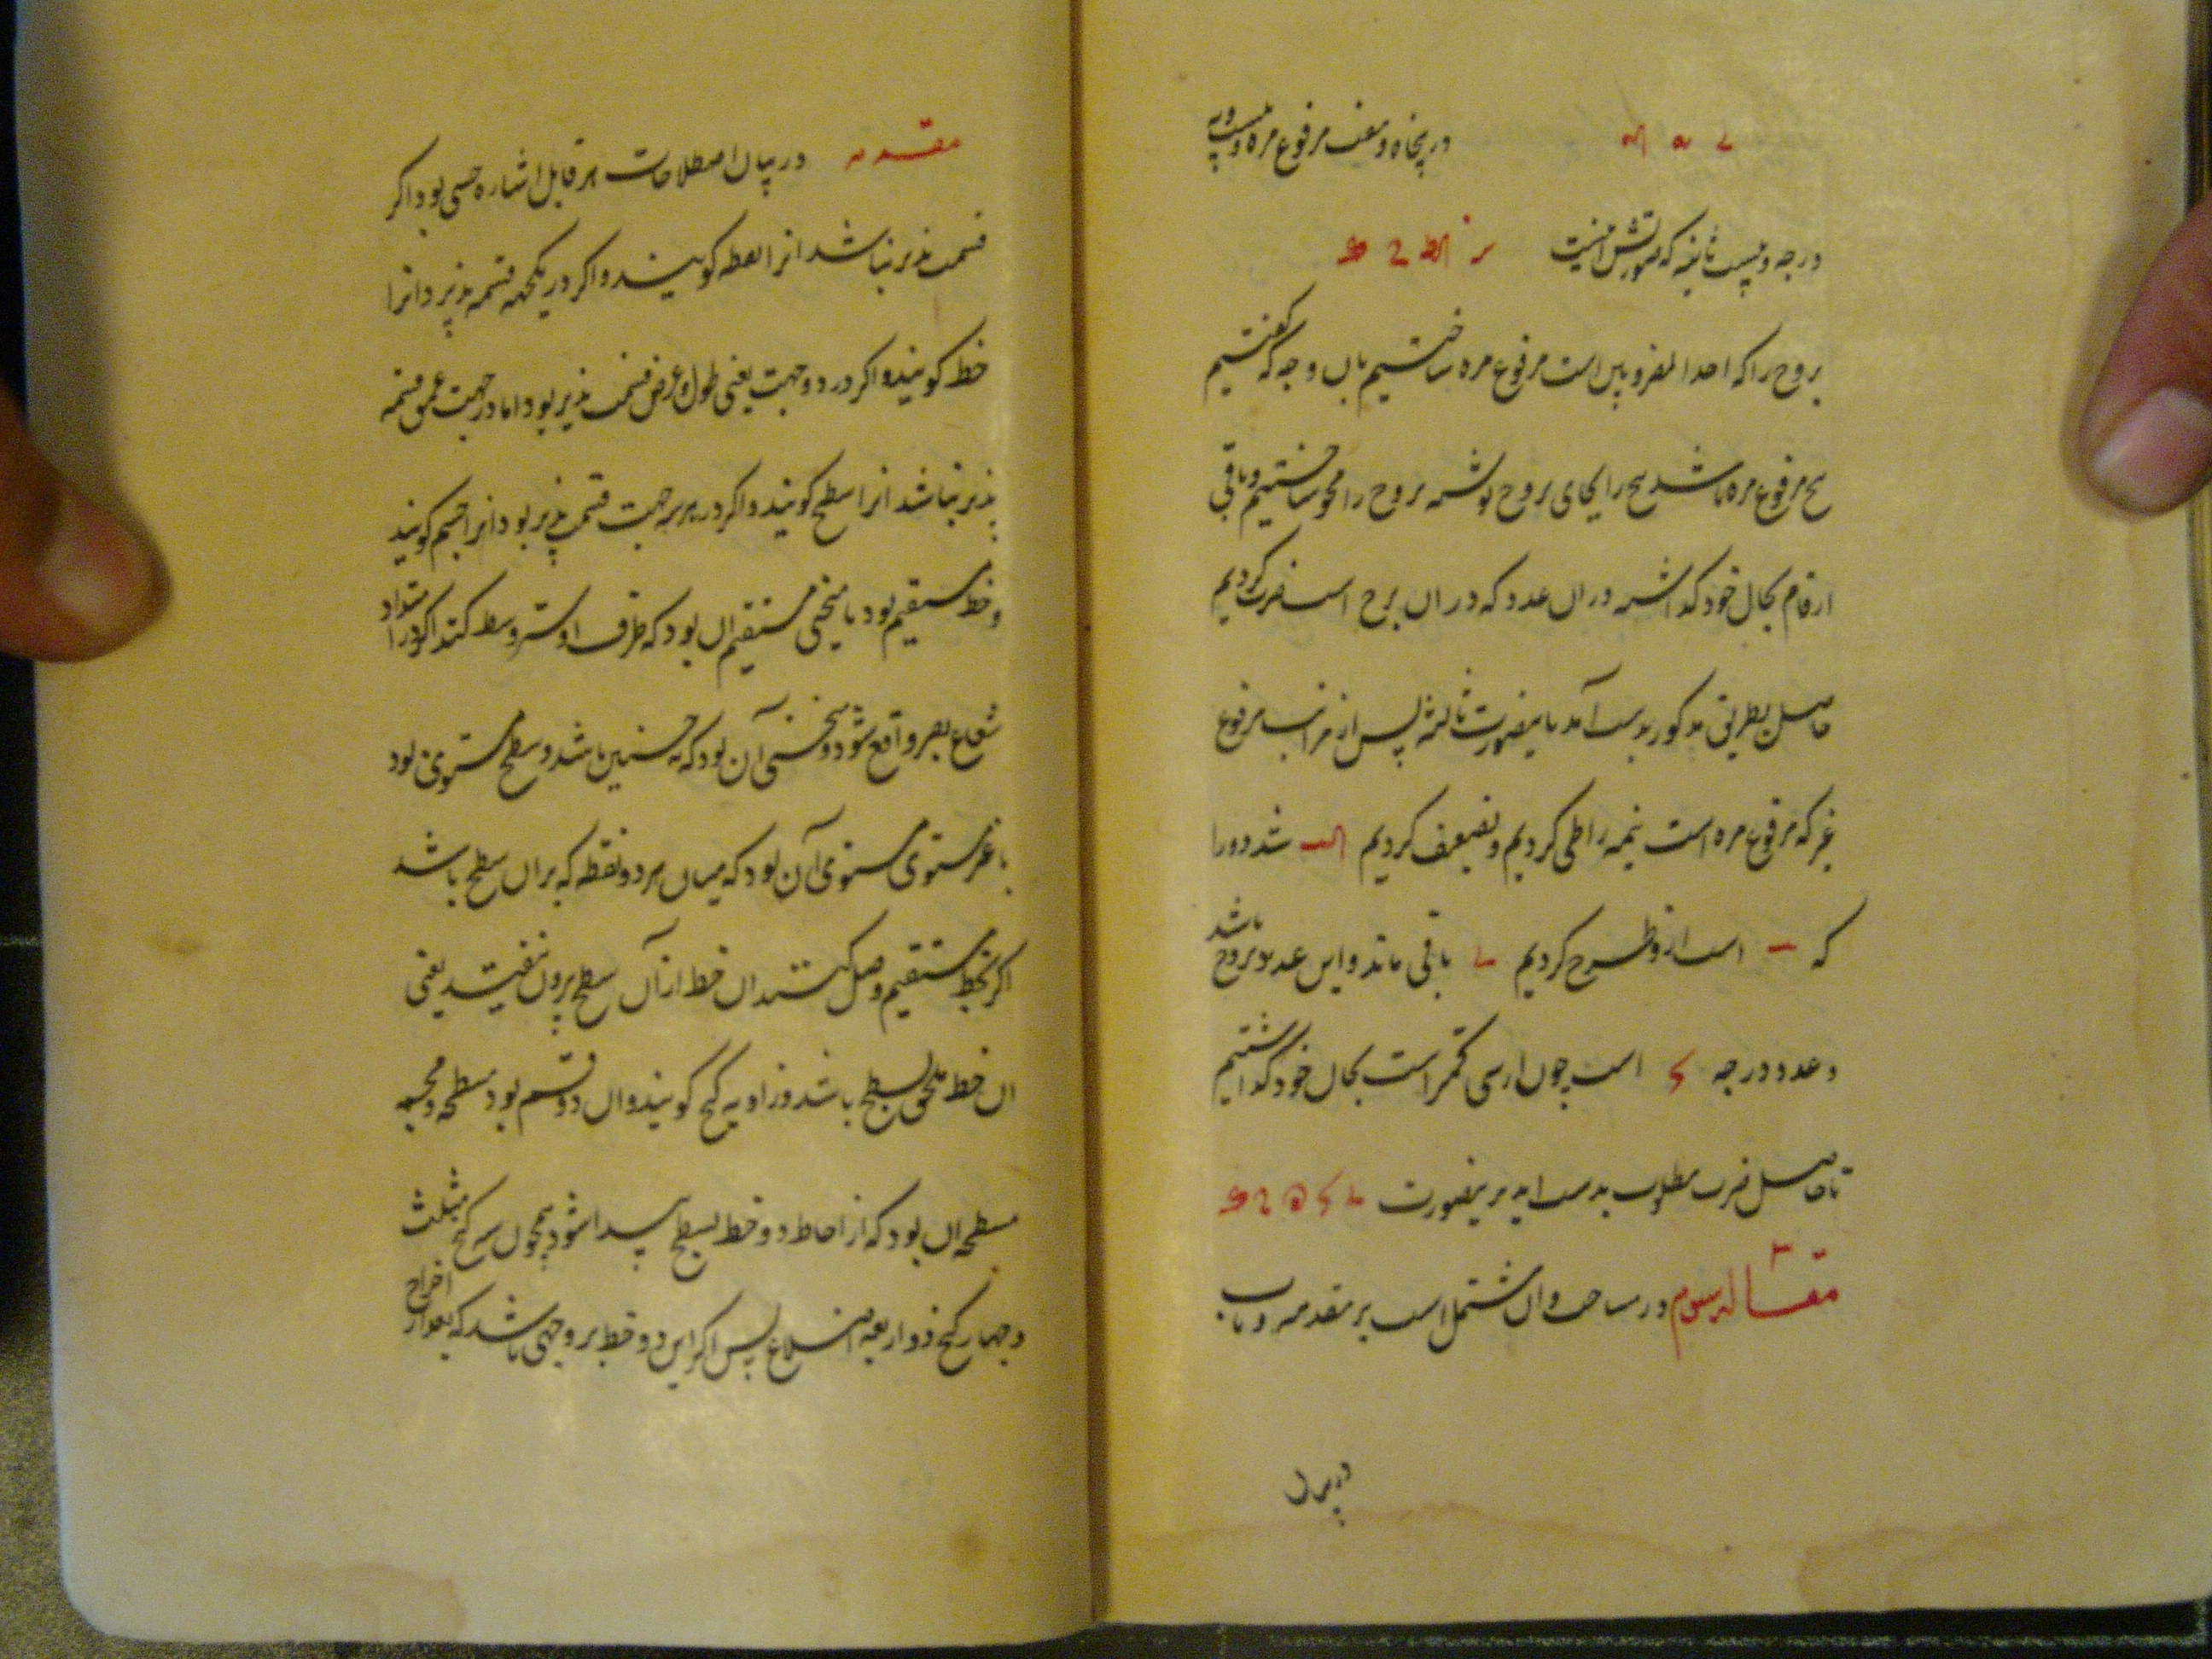 در پنجاه و هفت مرفوع مره و بیست و سه
درجه و بیست ثانیه که صورتش اینست
بروج را که احد المضروبین است مرفوع مره ساختیم بان وجه که گفتیم
مرفوع مره باشد را بجای بروج نوشته بروج را محو ساختیم و باقی
ارقام بحال خود گذاشته در ان عدد که در ان برج است ضرب کردیم
حاصل بطریق مذکور بدست آمد باینصورت ثالثه پس از مراتب مرفوع
که مرفوع مره است نیمه را طی کردیم و تضعیف کردیم شد دور را
که است ازو طرح کردیم باقی ماند و این عدد بروج باشد
و عدد درجه است چون از سی کمتر است بحال خود گذاشتیم
تا حاصل ضرب مطلوب بدست اید برینصورت
مقاله سوم در مساحت و ان مشتمل است بر مقدمه و باب
در بیان
مقدمه در بیان اصطلاحات هر قابل اشاره حسی بود اگر
قسمت پذیر نباشد انرا نقطه گویند و اگر در یکجهه قسمه پذیرد انرا
خط گویند و اگر در دو جهت یعنی طول و عرض قسمت پذیر بود اما در جهت عمق قسمه
پذیر نباشد انرا سطح گویند و اگر در هر سه جهت قسمت پذیر بود انرا جسم گویند
و خط مستقیم بود یا منحنی مستقیم ان بود که طرف او ستر وسط کند اگر در امتداد
شعاع بصر واقع شود و منحنی آن بود که نه چنین باشد و سطح مستوی بود
یا غیر مستوی مستوی آن بود که میان هر دو نقطه که بران سطح باشد
اگر بخط مستقیم وصل کنند ان خط از آن سطح بیرون نیفتد یعنی
ان خط ملحق بسطح باشد و زاویه کنج گویند و ان دو قسم بود مسطحه و مجسمه
مسطحه ان بود که از احاطه دو خط بسطح پیدا شود همچون سه کنج مثلث
و چهار کنج ذو اربعه اضلاع پس اگر این دو خط بر وجهی باشد که بعد از اخراج